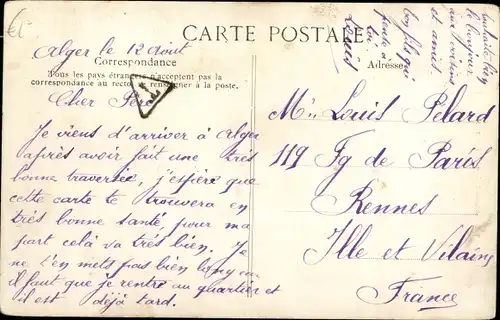 CARTE POSTALE
Alger le 12 Aout
Correspondance
Tous les pays étrangers n'acceptent pas la
correspondance au recto, se renseigner à la poste.
Cher Père
T
Je viens d'arriver à Alger
après avoir fait une très
bonne traversée, j'espère que
cette carte te trouvera en
très bonne santé, pour ma
part celà va très bien. Je
ne t'en mets pas bien long car
il faut que je rentre au quartier et
il est déjà tard.
souhaite bien
le bonjour
aux voisins
et amis
ton fils qui
pense à
toi
Louis
Adresse
Mr Louis Pelard
119 Fg de Paris
Rennes
Ille et Vilaine
France